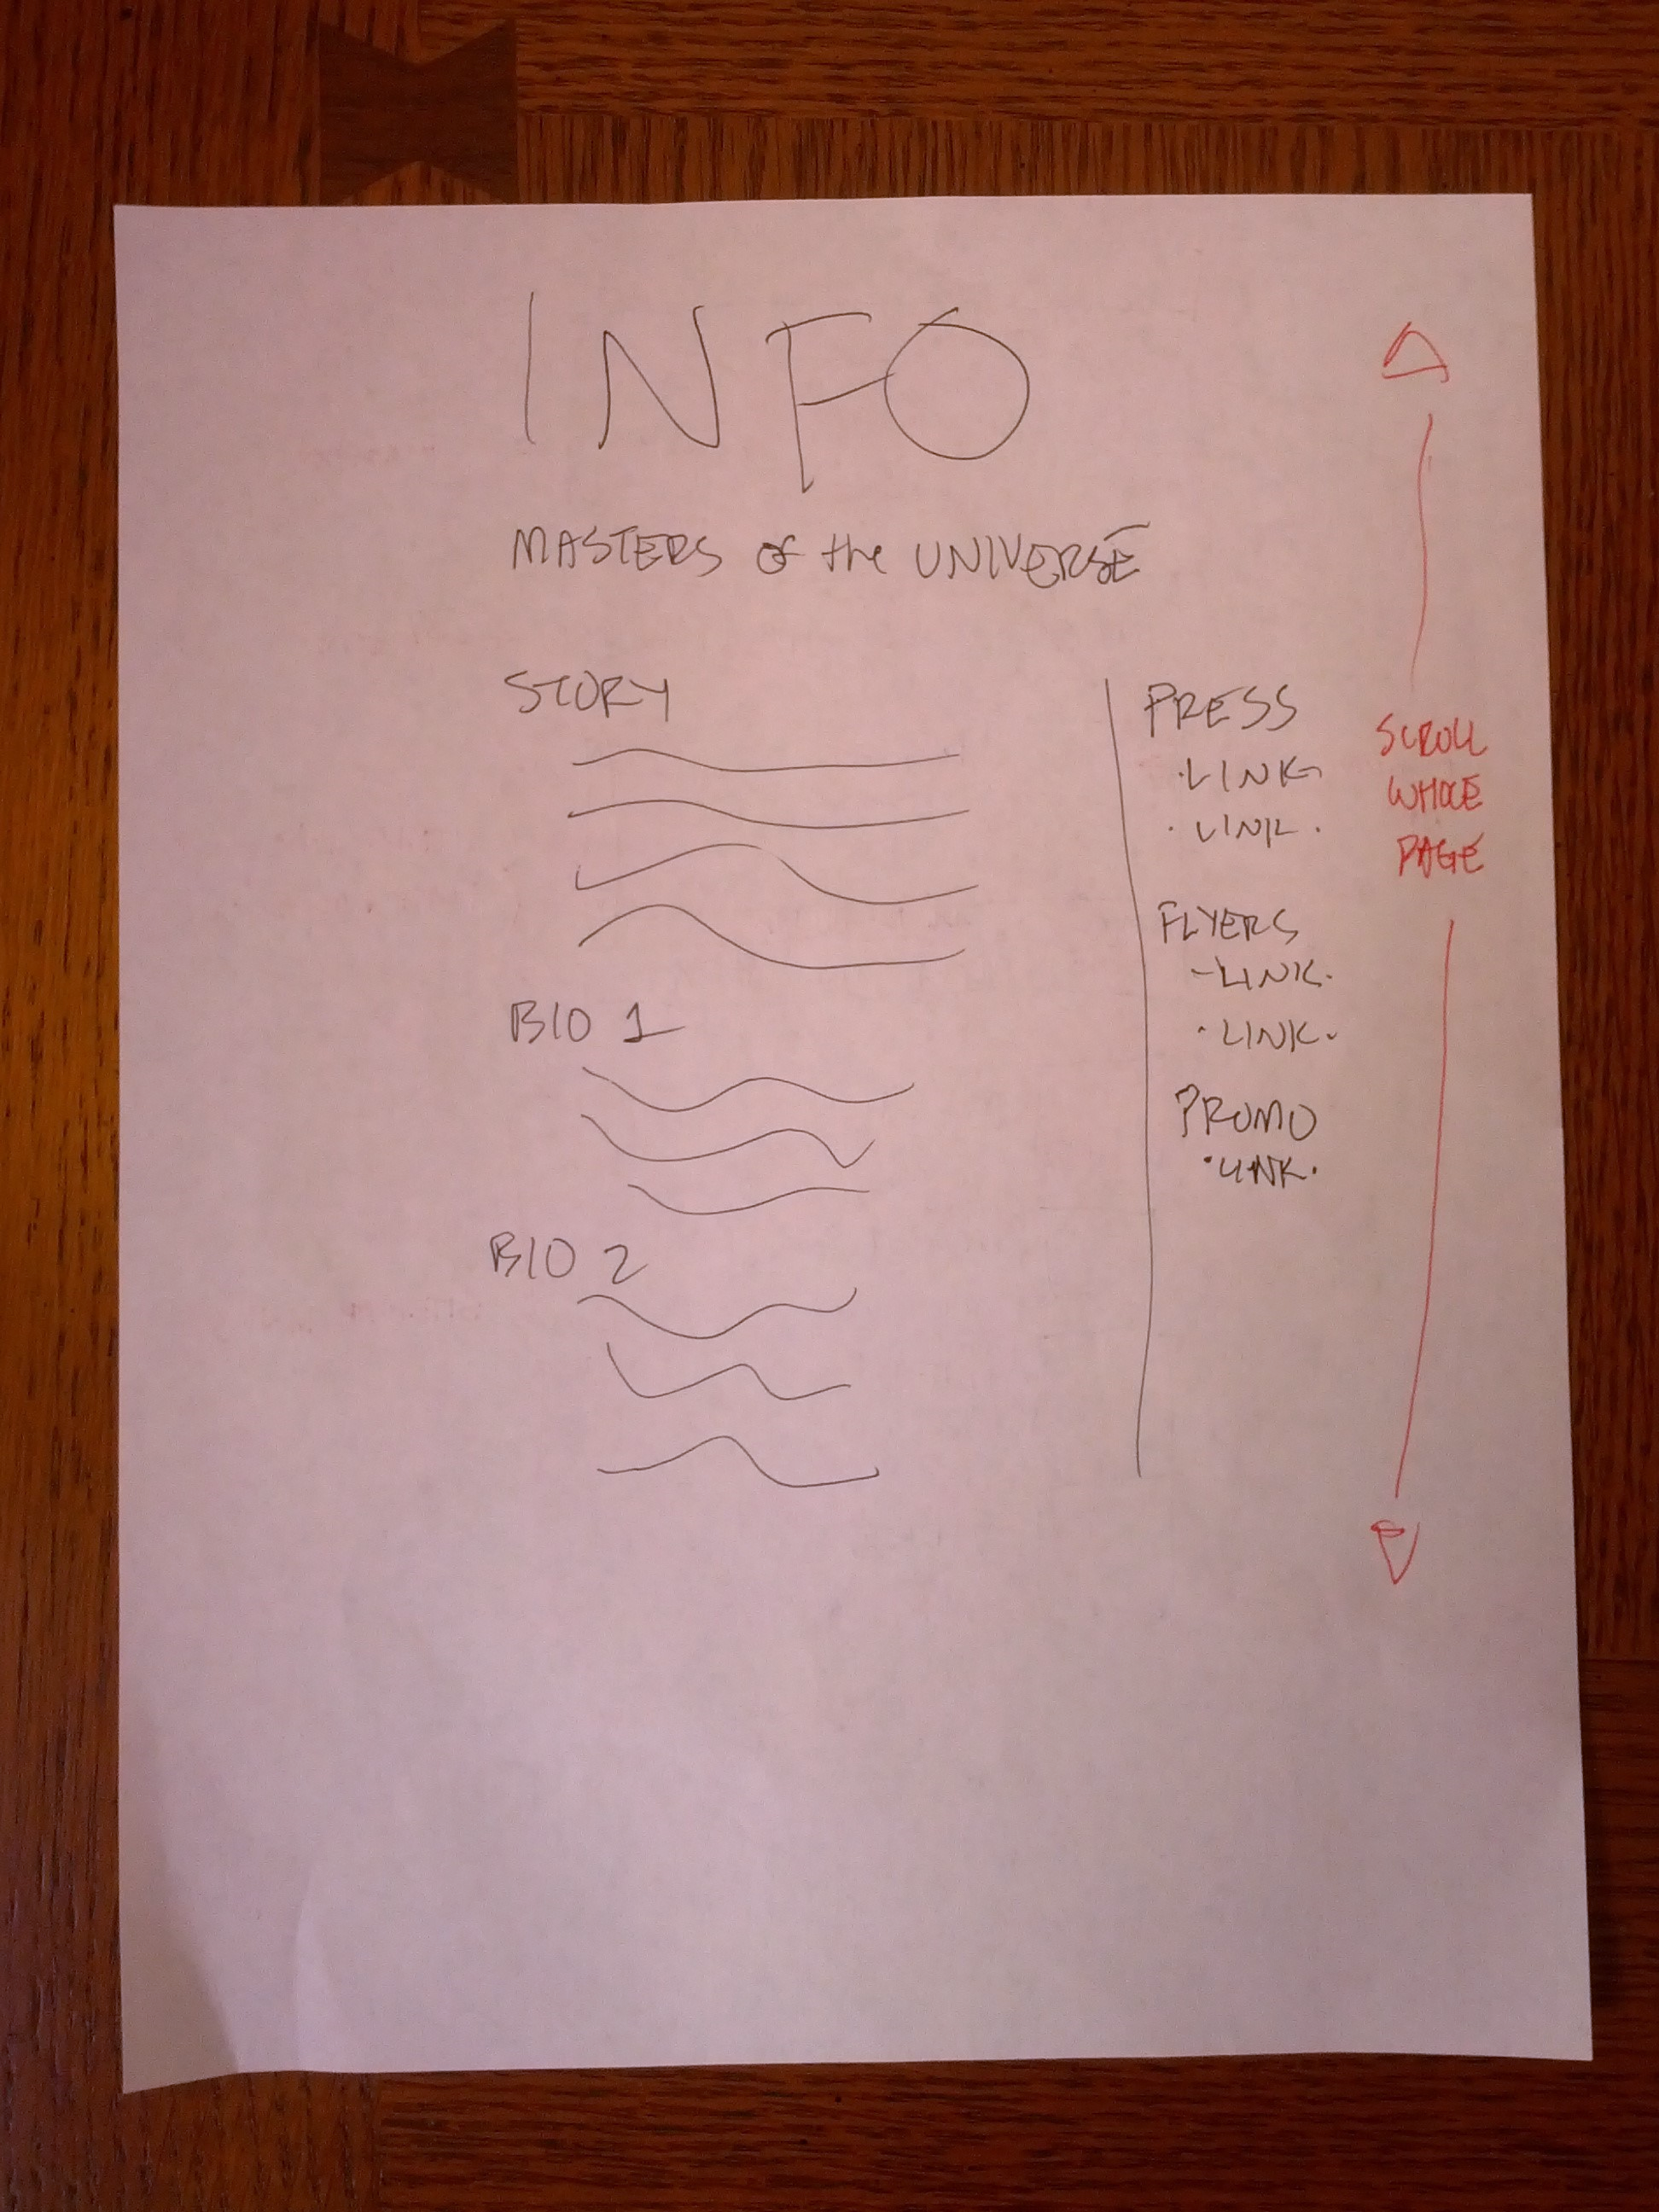 INFO
MASTERS of the UNIVERSE
STORY
BIO 1
BIO 2
PRESS
· LINK
· LINK .
FLYERS
- LINK .
· LINK .
PROMO
· LINK .
SCROLL
WHOLE
PAGE